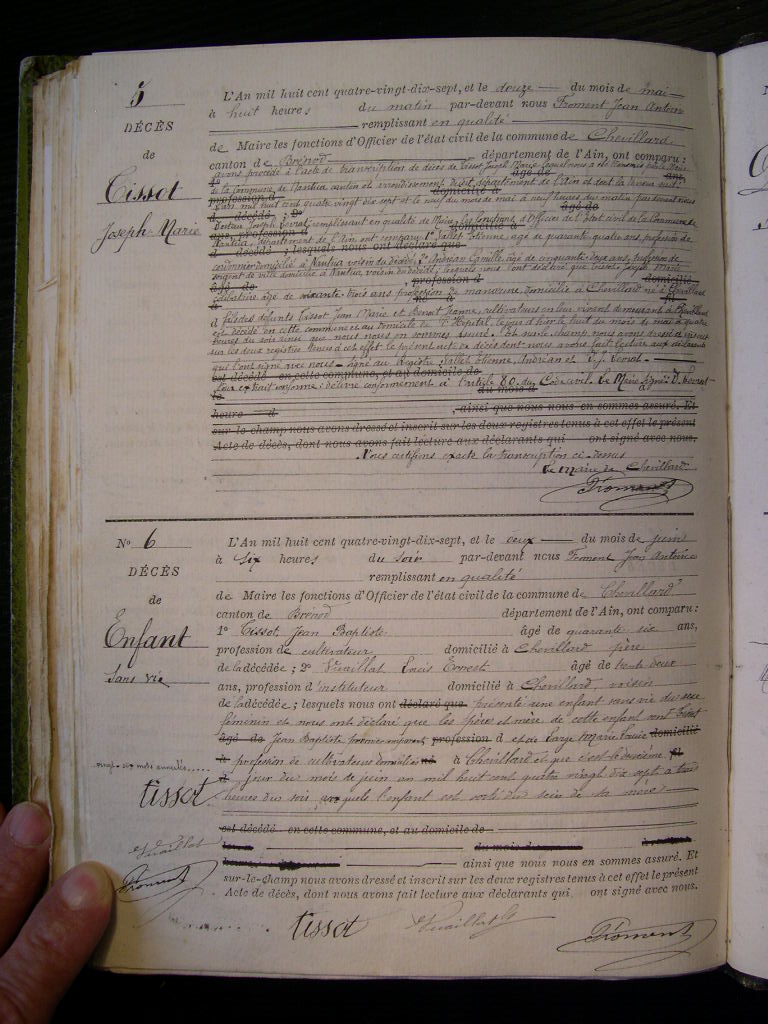 5
DÉCÈS
de
Tissot
Joseph-Marie
L'An mil huit cent quatre-vingt-dix-sept, et le douze du mois de mai
à huit heures du matin par-devant nous Froment Jean Antoine
remplissant en qualité
de Maire les fonctions d'Officier de l'état civil de la commune de Chevillard
canton de Brénod département de l'Ain, ont comparu :
avons procédé à l'acte de transcription de décès de Tissot Joseph Marie
de la Commune de Nantua, canton et arrondissement département de l'Ain et dont la teneur suit
L'an mil huit cent quatre vingt dix sept et le neuf du mois de mai à neuf heures du matin par devant nous
remplissant en qualité de Maire les fonctions d'Officier de l'Etat civil de la Commune de
Nantua, département de l'Ain ont comparu 1° Sallet Etienne, âgé de quarante quatre ans, profession de
cordonnier domicilié à Nantua voisin du décédé, 2° Andréan Camille, âgé de cinquante deux ans, profession de
sergent de ville domicilié à Nantua voisin du décédé, lesquels nous ont déclaré que Tissot Joseph Marie
célibataire âgé de soixante-trois ans profession de manœuvre domicilié à Chevillard né à Chevillard
fils des défunts Tissot Jean Marie et Benoit Jeanne, cultivateurs en leur vivant demeurant à Chevillard
est décédé en cette commune et au domicile de l'Hôpital, le jour d'hier le huit du mois de mai à quatre
heures du soir ainsi que nous nous en sommes assuré. Et sur le champ nous avons dressé et inscrit
sur les deux registres tenus à cet effet le présent acte de décès dont nous avons fait lecture aux déclarants
qui l'ont signé avec nous. Signé au Registre Sallet Etienne, Andréan et
est décédé en cette commune, et au domicile de
Pour extrait conforme : délivré conformément à l'article 80 du Code civil. Le Maire signé
heure d , ainsi que nous nous en sommes assuré. Et
sur-le-champ nous avons dressé et inscrit sur les deux registres tenus à cet effet le présent
Acte de décès, dont nous avons fait lecture aux déclarants qui ont signé avec nous.
Nous certifions exacte la transcription ci-dessus
Le Maire de Chevillard
Froment
N° 6
DÉCÈS
de
Enfant
Sans vie
L'An mil huit cent quatre-vingt-dix-sept, et le deux du mois de juin
à six heures du soir par-devant nous Froment Jean Antoine
remplissant en qualité
de Maire les fonctions d'Officier de l'état civil de la commune de Chevillard
canton de Brénod département de l'Ain, ont comparu :
1° Tissot Jean Baptiste âgé de quarante six ans,
profession de cultivateur domicilié à Chevillard père
de la décédée ; 2° Vuaillat Louis Ernest âgé de trente deux
ans, profession d'instituteur domicilié à Chevillard, voisin
de la décédée ; lesquels nous ont déclaré que présenté une enfant sans vie du sexe
féminin et nous ont déclaré que les père et mère de cette enfant sont Tissot
âgé de Jean Baptiste profession d et de Marie Louise domicilié
à profession de cultivateurs domiciliés né à Chevillard et que c'est le deuxième fil
d jour du mois de juin an mil huit cent quatre vingt dix sept à trois
heures du soir que l'enfant est sorti du sein de sa mère
est décédé en cette commune, et au domicile de
ainsi que nous nous en sommes assuré. Et
sur-le-champ nous avons dressé et inscrit sur les deux registres tenus à cet effet le présent
Acte de décès, dont nous avons fait lecture aux déclarants qui ont signé avec nous.
vingt-six mots annulés
tissot
Vuaillat
Froment
tissot Vuaillat Froment